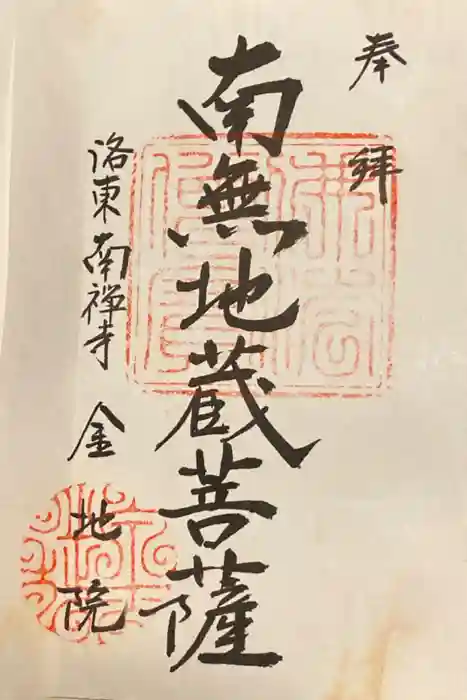 奉拝
南無地蔵菩薩
洛東南禅寺
金地院